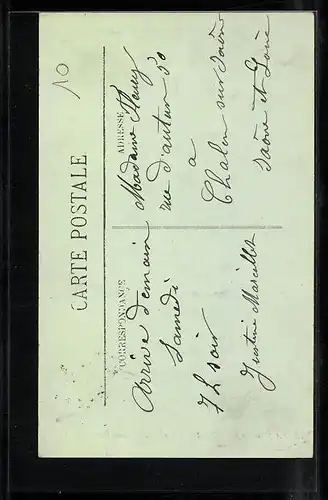 10
CARTE POSTALE
CORRESPONDANCE
Arrive demain
Samedi
7 h soir
Justine
ADRESSE
Madame Fleury
rue d'autun 30
à
Chalon sur Saône
Saône et Loire